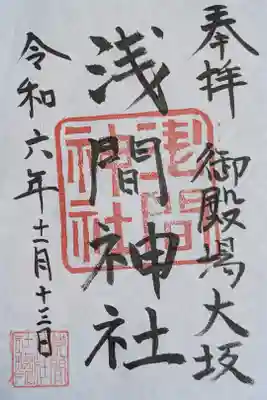 奉拝 御殿場大坂
浅間神社
浅間神社
令和六年十一月十三日